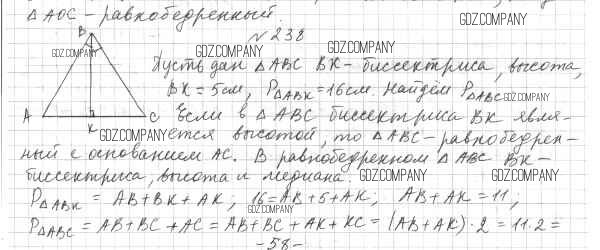 △AOC – равнобедренный.
№238
Пусть дан △ABC BK – биссектриса, высота,
BK = 5см, P△ABK = 16см. Найдём P△ABC
Если в △ABC биссектриса BK явля-
ется высотой, то △ABC – равнобедрен-
ный с основанием AC. В равнобедренном △ABC BK –
биссектриса, высота и медиана.
P△ABK = AB+BK+AK; 16=AB+5+AK; AB+AK=11,
P△ABC = AB+BC+AC = AB+BC+AK+KC = (AB+AK)·2 = 11·2=
-58-
B
A
K
C
GDZ.COMPANY
GDZ.COMPANY
GDZ.COMPANY
GDZ.COMPANY
GDZ.COMPANY
GDZ.COMPANY
GDZ.COMPANY
GDZ.COMPANY
GDZ.COMPANY